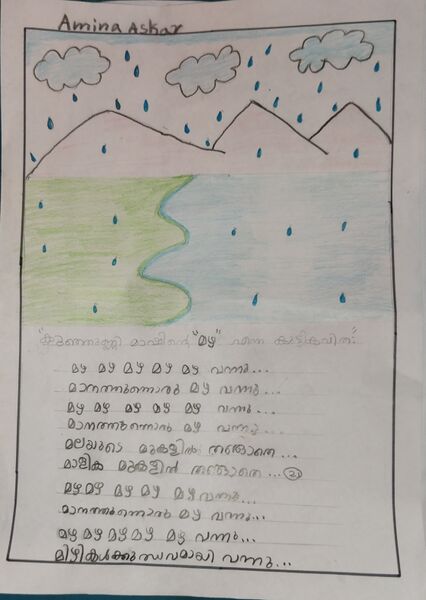 Amina Askar
"കുഞ്ഞുണ്ണി മാഷിന്റെ "മഴ" എന്ന കുട്ടികവിത"
മഴ മഴ മഴ മഴ മഴ വന്നു...
മാനത്തുന്നൊരു മഴ വന്നു...
മഴ മഴ മഴ മഴ മഴ വന്നു...
മാനത്തുന്നൊരു മഴ വന്നു...
മലയുടെ മുകളിൽ തങ്ങാതെ...
മാളിക മുകളിൽ തങ്ങാതെ... (2)
മഴ മഴ മഴ മഴ മഴ വന്നു...
മാനത്തുന്നൊരു മഴ വന്നു...
മഴ മഴ മഴ മഴ മഴ വന്നു...
മിഴികൾക്കുത്സവമായി വന്നു...